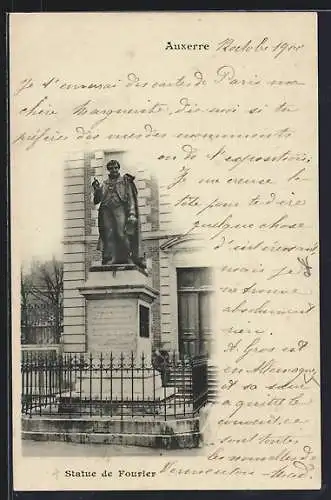 Auxerre 8 octobre 1900
Je t'enverrai des cartes de Paris ma
chère Marguerite, dis-moi si tu
préfères des vues des monuments
ou de l'exposition.
Je me creuse la
tête pour te dire
quelque chose
d'intéressant
mais je
ne trouve
absolument
rien.
Gros est
en Allemagne
et sa
a quitté le
sont toutes
les nouvelles de
Statue de Fourier